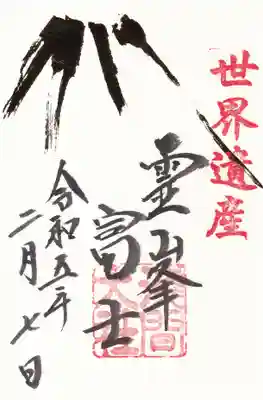 世界遺産
霊峯
富士
令和五年
二月七日